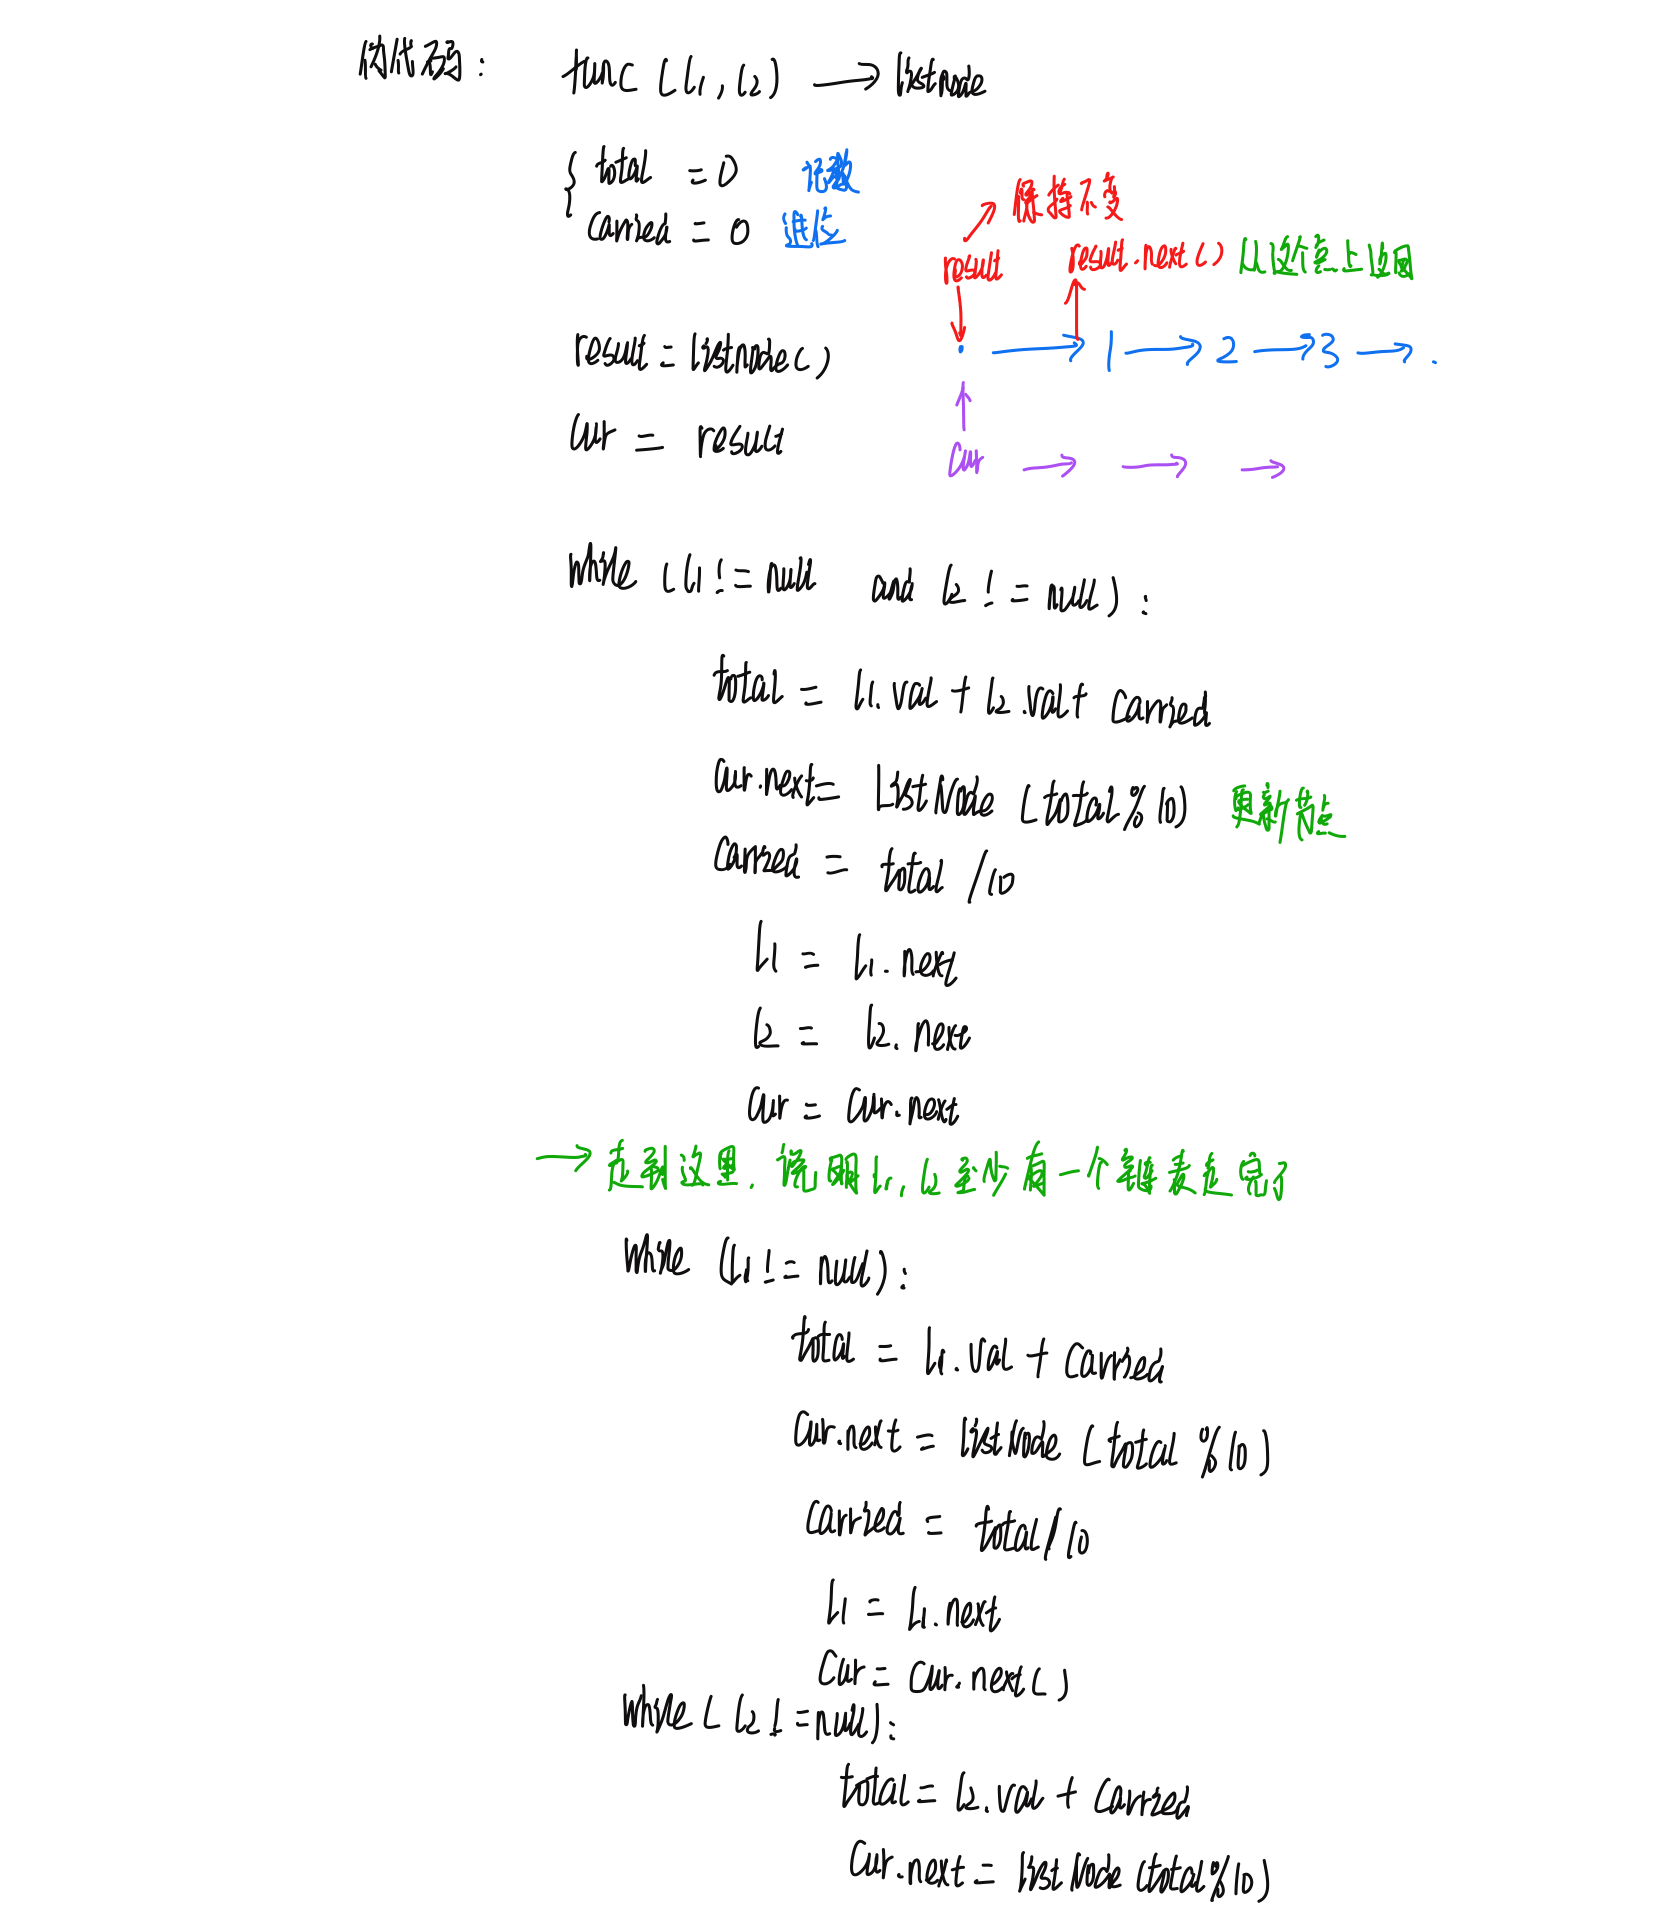 伪代码: func (l1, l2) → listnode
total = 0 记数
carried = 0 进位
保持不变
result result.next() 从这个点上返回
result = listnode()
· → 1 → 2 → 3 → .
cur = result
cur → → →
while (l1 != null and l2 != null):
total = l1.val + l2.val + carried
cur.next = ListNode (total%10) 更新节点
carried = total /10
l1 = l1.next
l2 = l2.next
cur = cur.next
→ 走到这里. 说明l1, l2至少有一个链表走完了
while (l1 != null):
total = l1.val + carried
cur.next = listNode (total %10)
carried = total/10
l1 = l1.next
cur = cur.next()
while (l2 != null):
total = l2.val + carried
cur.next = listNode (total%10)